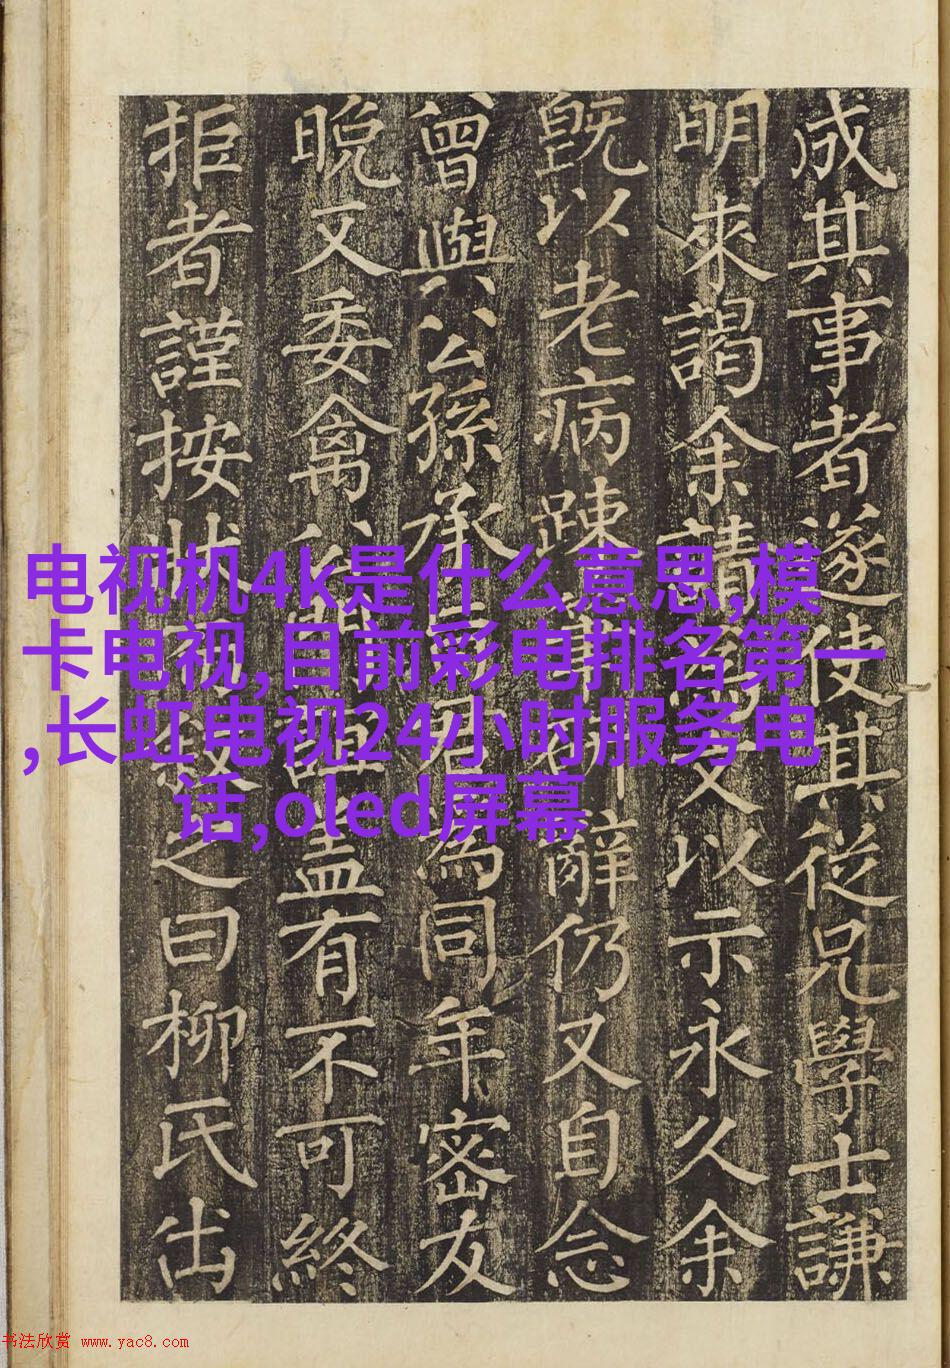 成其事者遂使其從兄學士謙
明來謁余請文以示永久余
既以老病踈辭仍又自念
曾與公孫承為同年密友
晚又委禽盖有不可終
拒者謹按狀之曰柳氏出
电视机4k是什么意思,模
卡电视,目前彩电排名第一
,长虹电视24小时服务电
话,oled屏幕
书法欣赏 www.yac8.com